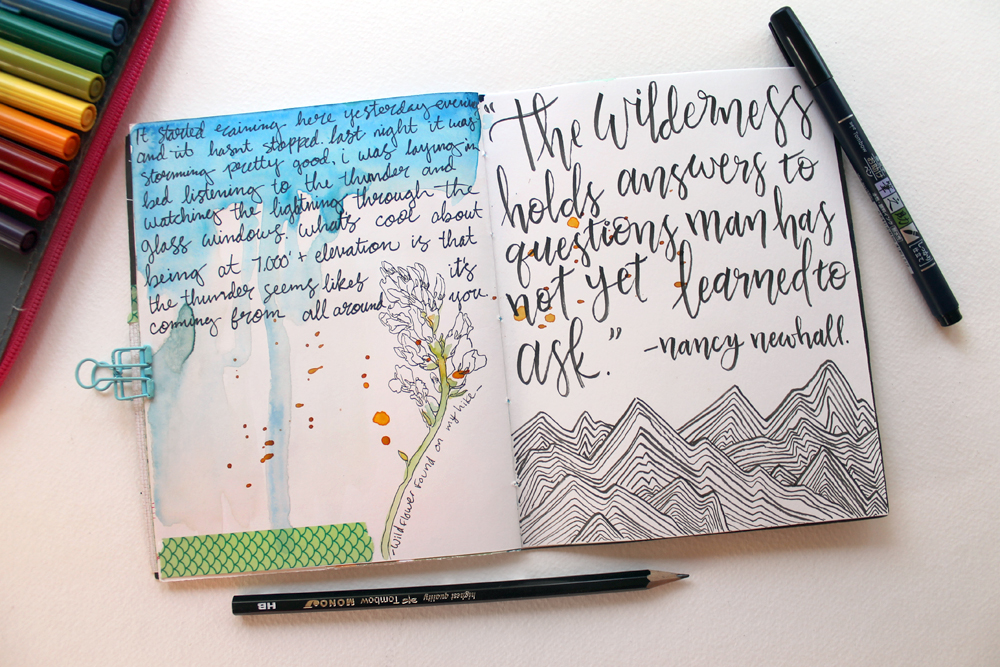 It started raining here yesterday evening
and it hasnt stopped. last night it was
storming pretty good. i was laying in
bed listening to the thunder and
watching the lightning through the
glass windows. whats cool about
being at 7,000'+ elevation is that
the thunder seems likes it's
coming from all around you.
~wildflower found on my hike~
"The Wilderness
holds answers to
questions man has
not yet learned to
ask."
-nancy newhall.
HB Tombow MONO highest quality